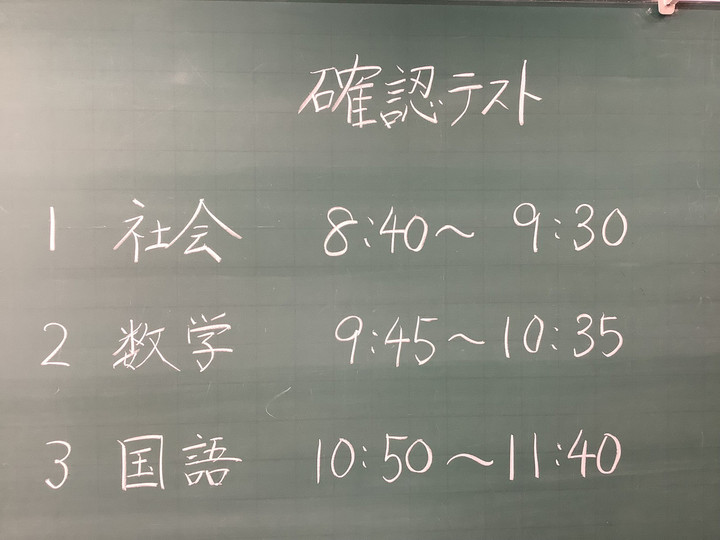 確認テスト
1 社会 8:40～ 9:30
2 数学 9:45～10:35
3 国語 10:50～11:40